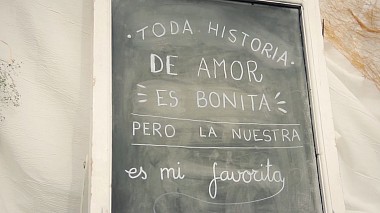 · TODA HISTORIA ·
DE AMOR
ES BONITA
PERO LA NUESTRA
es mi favorita